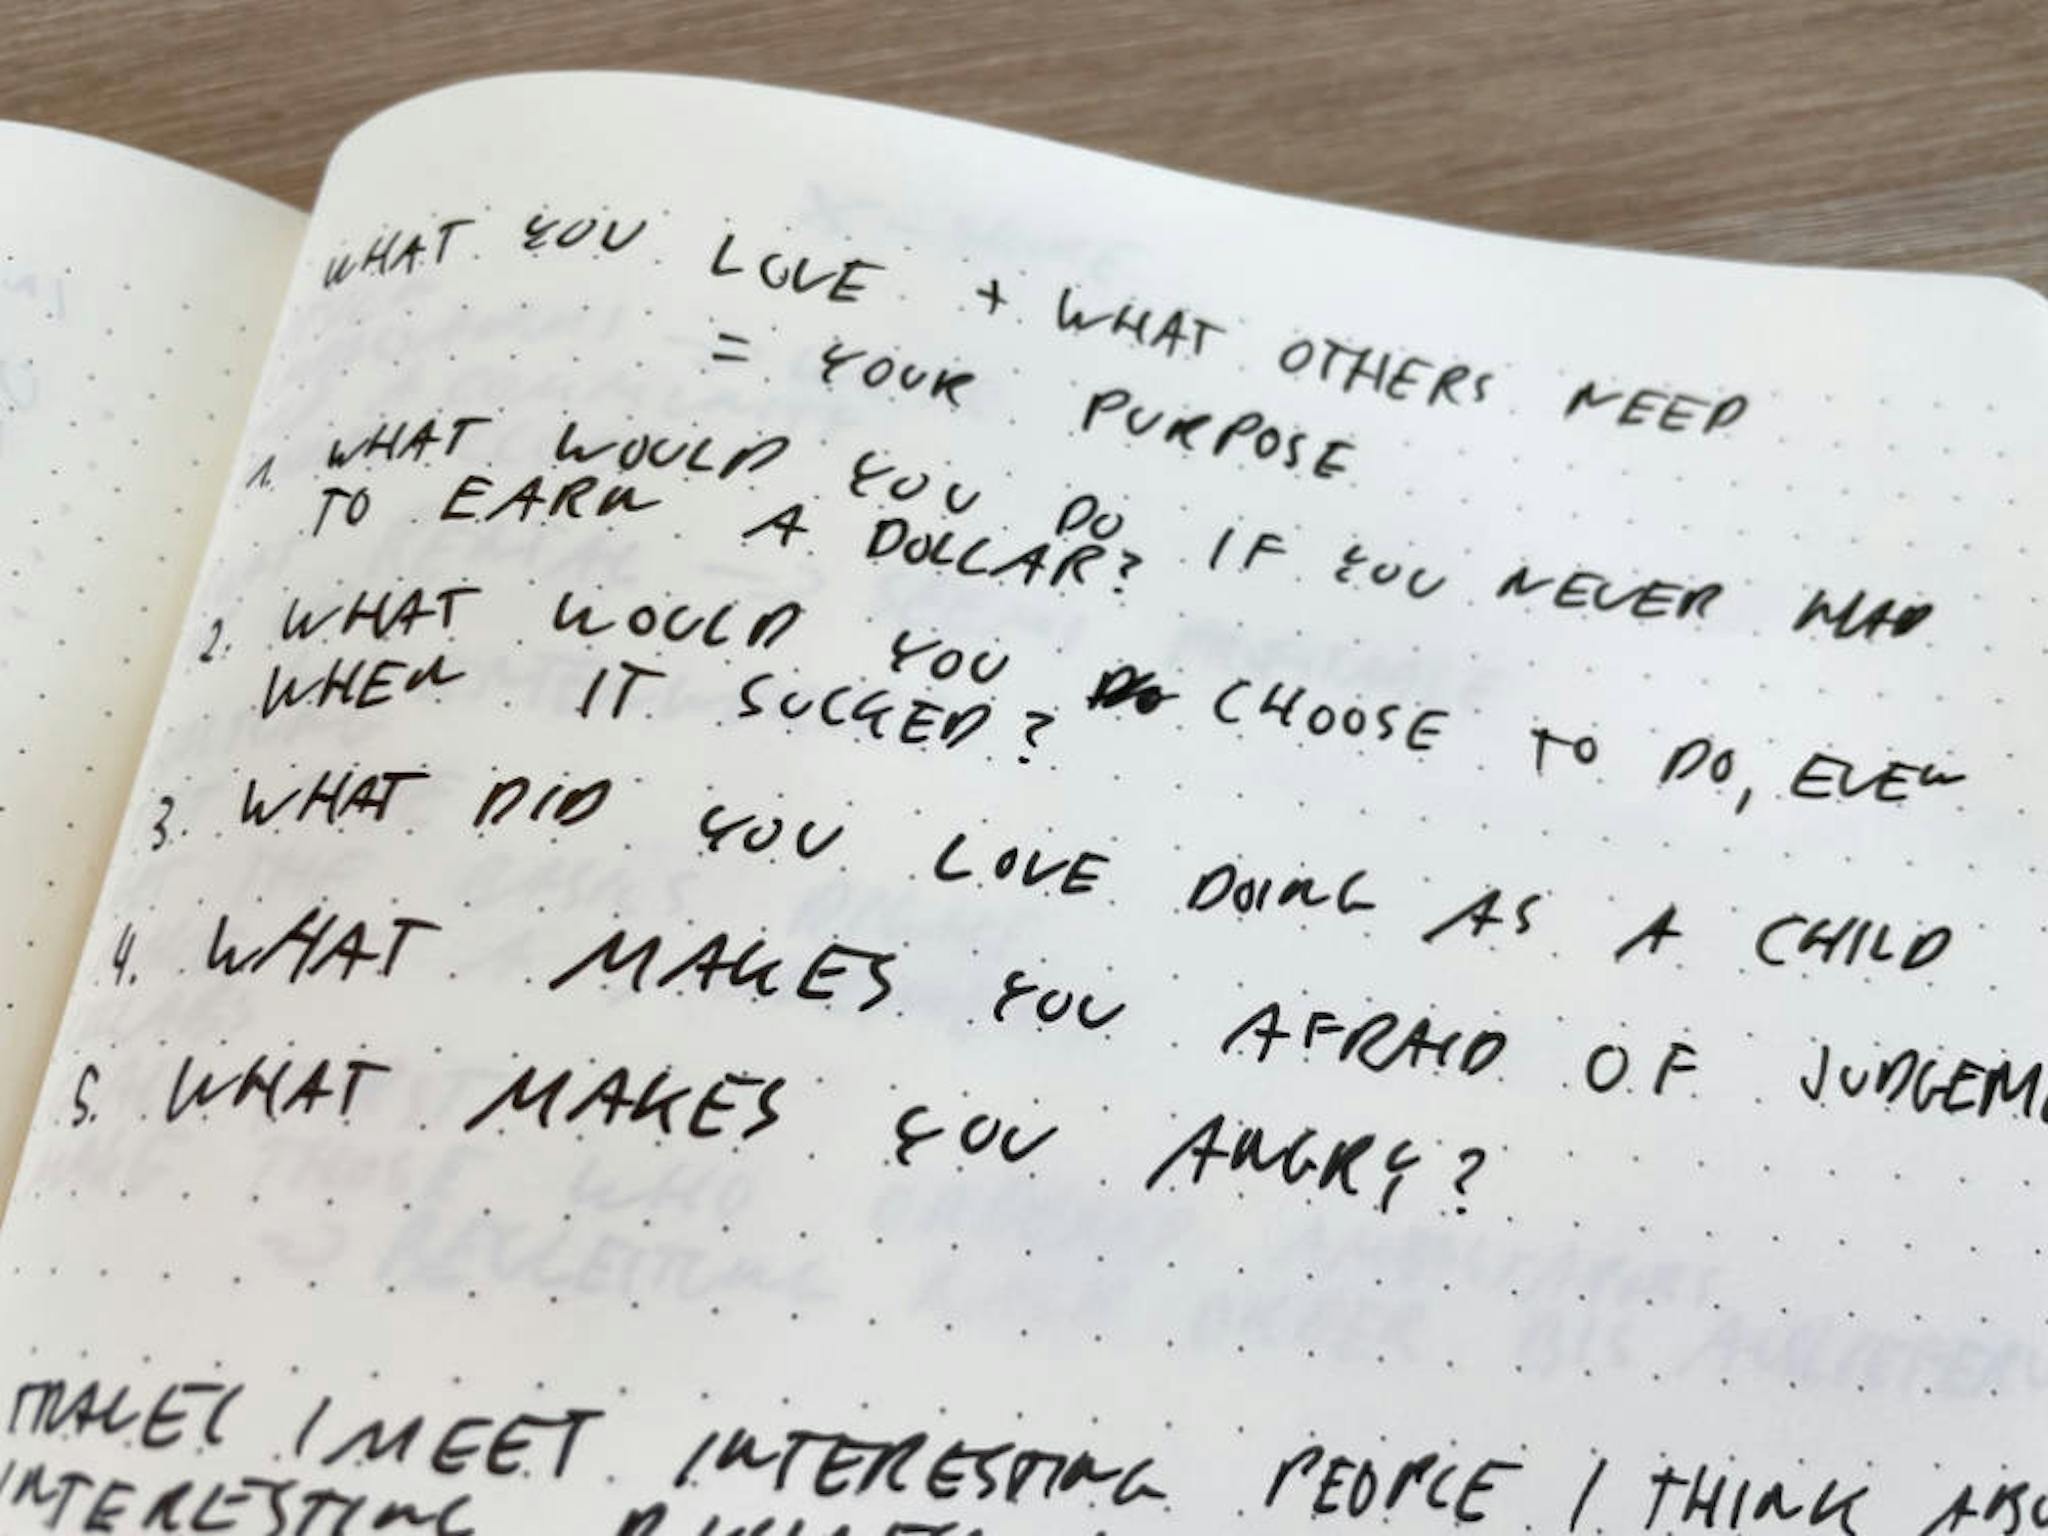 WHAT YOU LOVE + WHAT OTHERS NEED
= YOUR PURPOSE
1. WHAT WOULD YOU DO IF YOU NEVER HAD
TO EARN A DOLLAR?
2. WHAT WOULD YOU CHOOSE TO DO, EVEN
WHEN IT SUCKED?
3. WHAT DID YOU LOVE DOING AS A CHILD
4. WHAT MAKES YOU AFRAID OF JUDGEME
5. WHAT MAKES YOU ANGRY?
TRAVEL I MEET INTERESTING PEOPLE I THINK ABO
INTERESTING